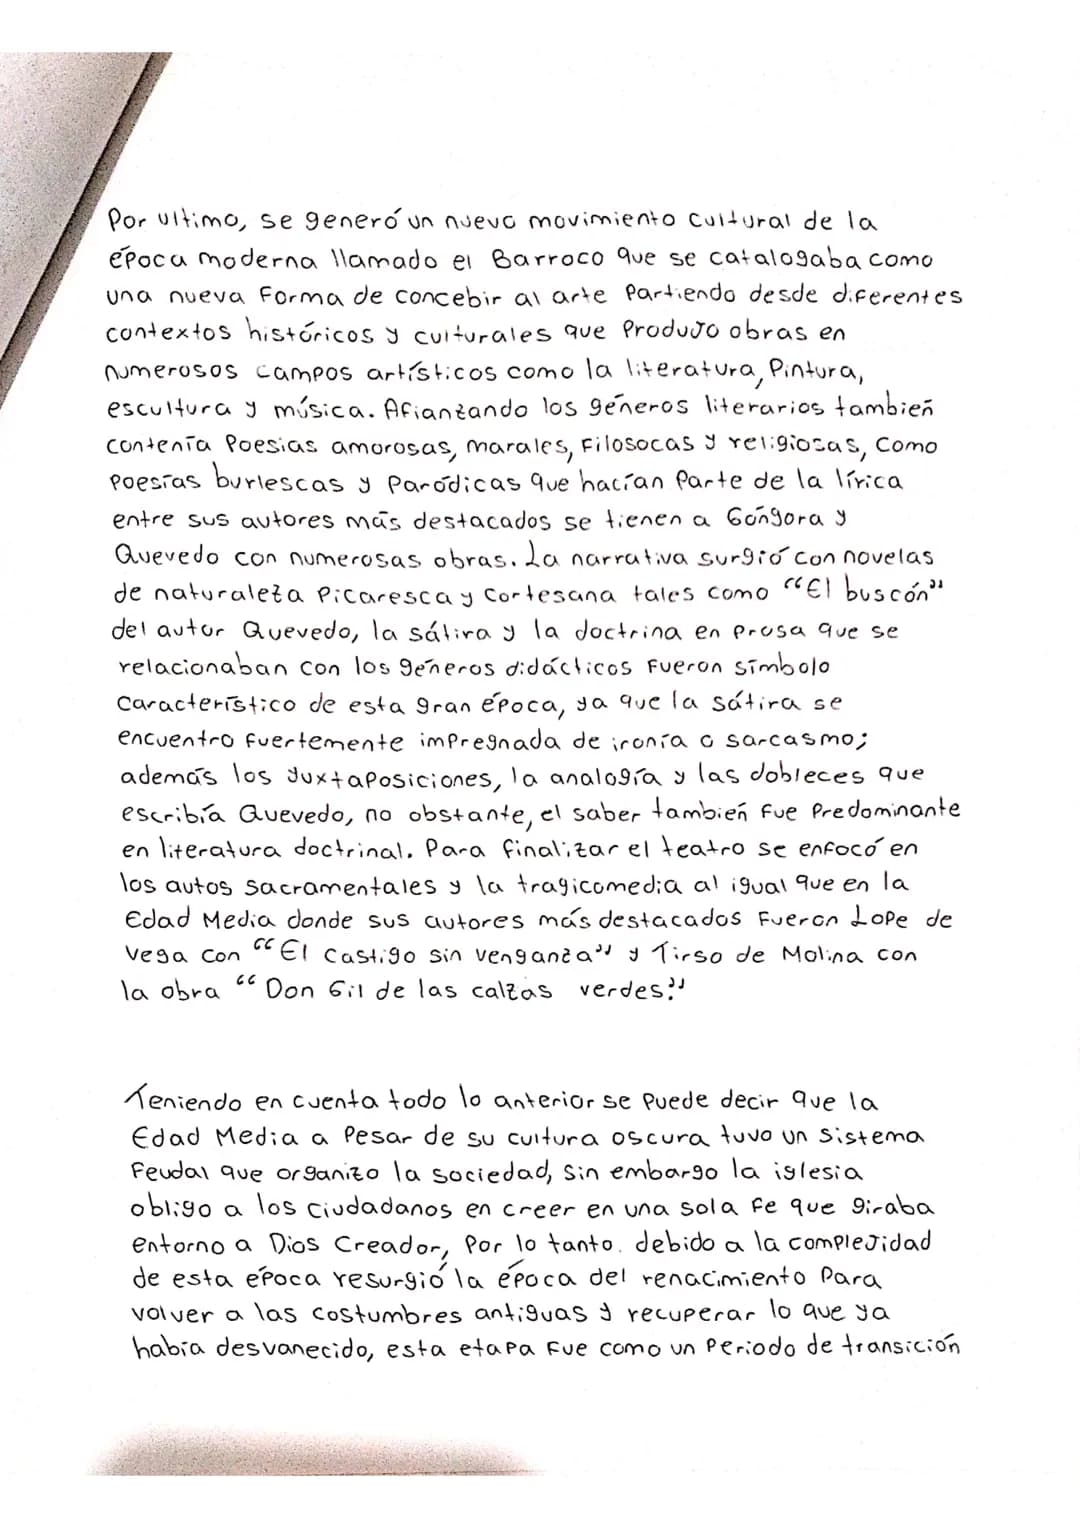 Por ultimo, se generó un nuevo movimiento cultural de la
época moderna llamado el Barroco que se catalogaba como
una nueva forma de concebir al arte partiendo desde diferentes
contextos históricos y culturales que produjo obras en
numerosos campos artísticos como la literatura, pintura,
escultura y música. Afianzando los géneros literarios también
contenía poesias amorosas, marales, filosocas y religiosas, como
poesías burlescas y paródicas que hacían parte de la lírica
entre sus autores más destacados se tienen a Góngora y
Quevedo con numerosas obras. La narrativa surgió con novelas
de naturaleza picaresca y cortesana tales como "El buscón"
del autor Quevedo, la sátira y la doctrina en prosa que se
relacionaban con los géneros didácticos fueron símbolo
característico de esta gran época, ya que la sátira se
encuentro fuertemente impregnada de ironía o sarcasmo;
además los yuxtaposiciones, la analogía y las dobleces que
escribía Quevedo, no obstante, el saber también fue predominante
en literatura doctrinal. Para finalizar el teatro se enfocó en
los autos sacramentales y la tragicomedia al igual que en la
Edad Media donde sus autores más destacados fueron Lope de
Vega con "El Castigo sin venganza" y Tirso de Molina con
la obra "Don Gil de las calzas verdes."
Teniendo en cuenta todo lo anterior se puede decir que la
Edad Media a pesar de su cultura oscura tuvo un sistema
feudal que organizo la sociedad, sin embargo la iglesia
obligo a los ciudadanos en creer en una sola fe que giraba
entorno a Dios Creador, por lo tanto. debido a la complejidad
de esta época resurgió la época del renacimiento para
volver a las costumbres antiguas y recuperar lo que ya
había desvanecido, esta etapa fue como un periodo de transición